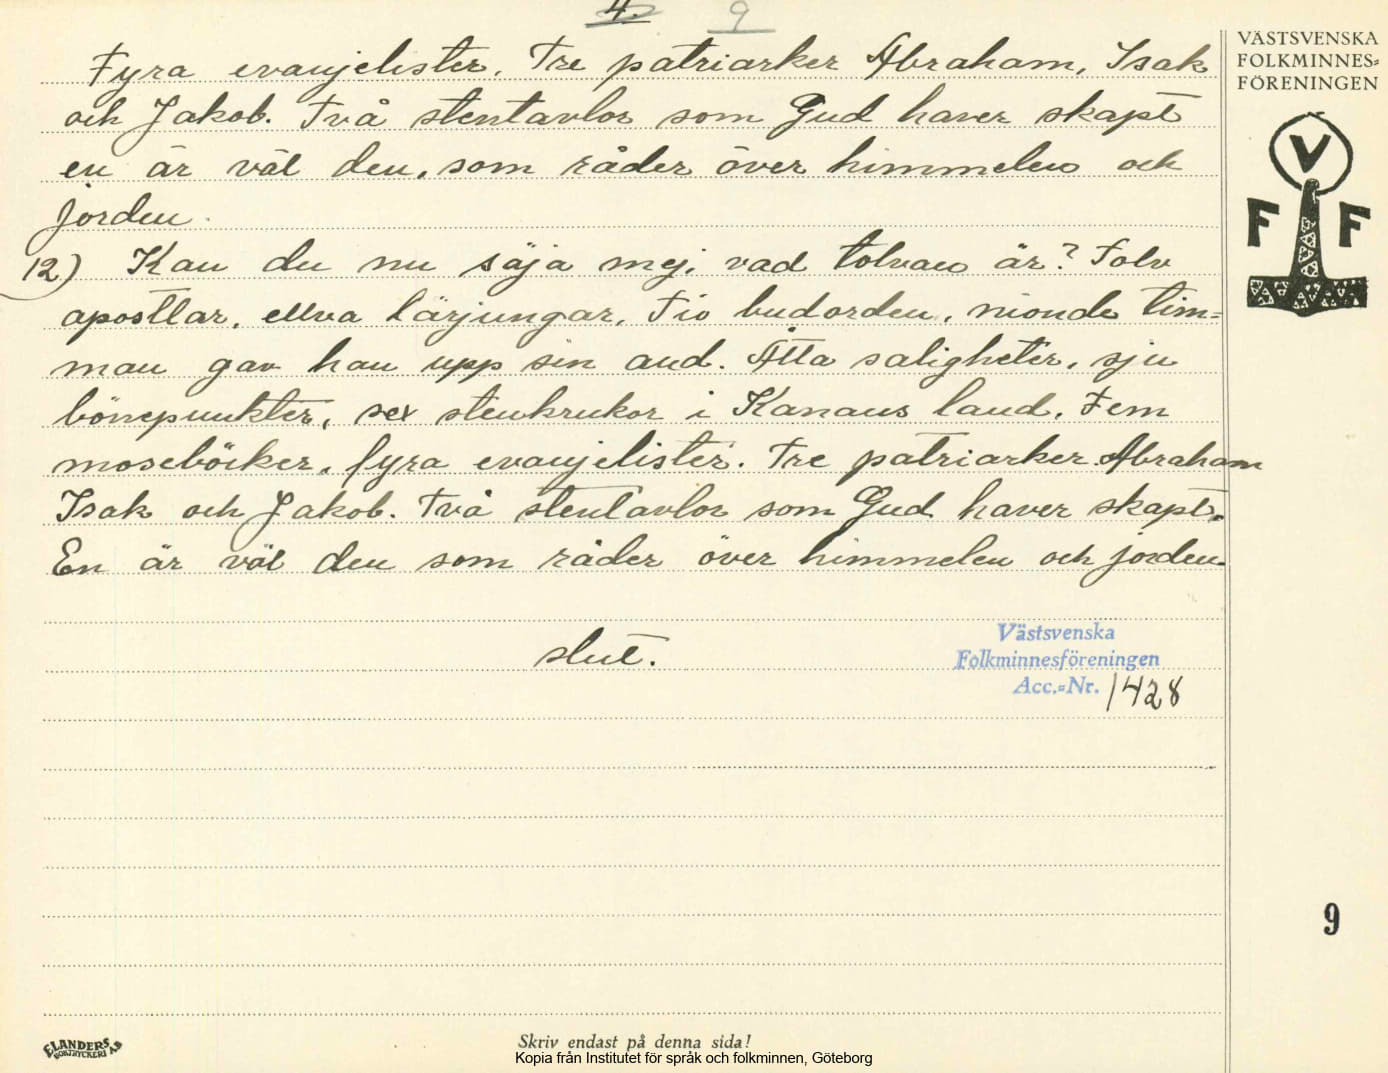 4. 9
Fyra evanjelister. Tre patriarker Abraham, Isak
och Jakob. Två stentavlor som Gud haver skapt
en är väl den, som råder över himmelen och
jorden.
12) Kan du nu säja mej, vad tolvan är? Tolv
apostlar, ellva lärjungar, Tio budorden, nionde tim=
man gav han upp sin and. Åtta saligheter, sju
bönepunkter, sex stenkrukor i Kanans land. Fem
moseböcker, fyra evanjelister. Tre patriarker Abraham
Isak och Jakob. Två stentavlor som Gud haver skapt.
En är väl den som råder över himmelen och jorden.
slut.
Västsvenska
Folkminnesföreningen
Acc.=Nr. 1428
VÄSTSVENSKA
FOLKMINNES=
FÖRENINGEN
V
F F
9
ELANDERS
BOKTRYCKERI AB
Skriv endast på denna sida!
Kopia från Institutet för språk och folkminnen, Göteborg